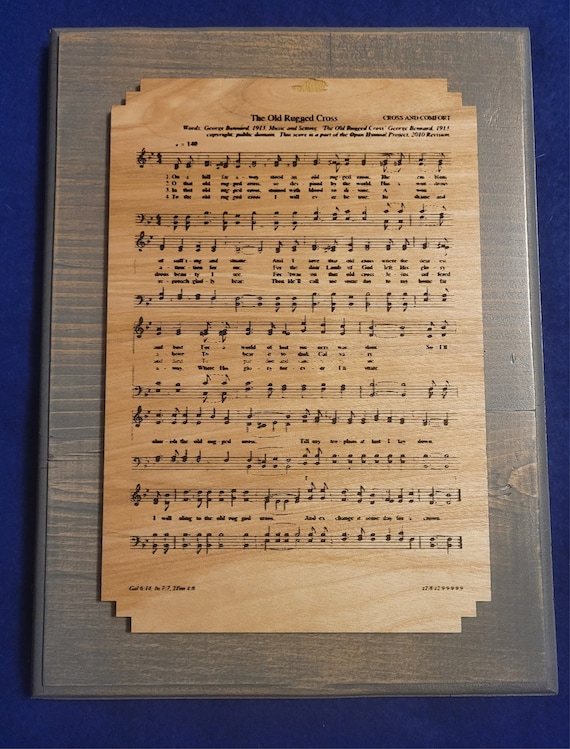 The Old Rugged Cross
CROSS AND COMFORT
Words: George Bennard, 1913. Music and Setting: 'The Old Rugged Cross' George Bennard, 1913
copyright: public domain. This score is a part of the Open Hymnal Project, 2010 Revision.
1. On a hill far a - way stood an old rug-ged cross, The em - blem
2. O that old rug-ged cross, so des - pised by the world, Has a won - drous
3. In that old rug-ged cross, stained with blood so di - vine, A
4. To the old rug-ged cross I will ev - er be true; Its shame and
of suff'r - ing and shame; And I love that old cross where the dear - est
a - ttrac - tion for me; For the dear Lamb of God left His glo - ry
drous beau - ty I see, For 'twas on that old cross Je - sus suf - fered
re - proach glad - ly bear; Then He'll call me some day to my home far
and best For a world of lost sin - ners was slain. So I'll
a - bove To bear it to dark Cal - va - ry.
a - way, Where His glo - ry for - ev - er I'll share.
cher - ish the old rug-ged cross, Till my tro - phies at last I lay down.
I will cling to the old rug-ged cross, And ex - change it some day for a crown.
Gal 6:14, Jn 7:7, 2Tim 4:8
12 8 12 9 9 9 9 9